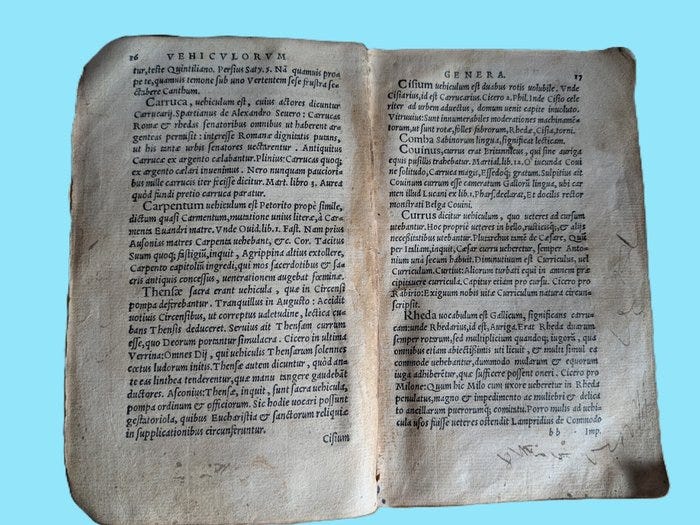 16 VEHICVLORVM
tur, teste Quintiliano. Persius Saty. 5. Nã quamuis prope
te, quamuis temone sub uno Vertentem sese frustra sectabere
Canthum.
Carruca, uehiculum est, cuius actores dicuntur
Carrucarij. Spartianus de Alexandro Seuero: Carrucas
Romæ & rhedas senatoribus omnibus ut haberent argenteas
permisit: interesse Romanæ dignitatis putans,
ut his tantæ urbis senatores uectarentur. Antiquitus
Carrucæ ex argento cælabantur. Plinius: Carrucas quoq;
ex argento cælari inuenimus. Nero nunquam paucioribus
mille carrucis iter fecisse dicitur. Mart. libro 3. Aurea
quòd fundi pretio carruca paratur.
Carpentum uehiculum est Petorito propè simile,
dictum quasi Carmentum, mutatione unius literæ, à Carmenta
Euandri matre. Vnde Ouid. lib. 1. Fast. Nam prius
Ausonias matres Carpenta uehebant, &c. Cor. Tacitus
Suum quoq; fastigiũ, inquit, Agrippina altius extollere,
Carpento capitoliũ ingredi, qui mos sacerdotibus & sacris
antiquis concessus, uenerationem augebat fœminæ.
Thensæ sacra erant uehicula, quæ in Circensi
pompa deferebantur. Tranquillus in Augusto: Accidit
uotiuis Circensibus, ut correptus ualetudine, lectica cubans
Thensas deduceret. Seruius ait Thensam currum
esse, quo Deorum portantur simulacra. Cicero in ultima
Verrina: Omnes Dij, qui uehiculis Thensarum solennes
cœtus ludorum initis. Thensæ autem dicuntur, quòd ante
eas linthea tenderentur, quæ manu tangere gaudebãt
ductores. Asconius: Thensæ, inquit, sunt sacra uehicula,
pompa ordinum & officiorum. Sic hodie uocari possunt
gestatoriola, quibus Eucharistia & sanctorum reliquiæ
in supplicationibus circunferuntur.
Cisium
GENERA. 17
Cisium uehiculum est duabus rotis uolubile. Vnde
Cisiarius, id est Carrucarius. Cicero 2. Phil. Inde Cisio celeriter
ad urbem aduectus, domum uenit capite inuoluto.
Vitruuius: Sunt innumerabiles moderationes machinamẽtorum,
ut sunt rotæ, folles fabrorum, Rhedæ, Cisia, torni.
Comba Sabinorum lingua, significat lecticam.
Couinus, currus erat Britannicus, qui sine auriga
equis pusillis trahebatur. Martial. lib. 12. O iucunda Couine
solitudo, Carruca magis, Essedoq; gratum. Sulpitius ait
Couinum currum esse cameratum Gallorũ lingua, ubi carmen
illud Lucani ex lib. 1. Phars. declarat, Et docilis rector
monstrati Belga Couini.
Currus dicitur uehiculum, quo ueteres ad cursum
utebantur. Hoc propriè ueteres in bello, rusticisq;, & alijs
necessitatibus utebantur. Plutarchus tamẽ de Cæsare, Quũ
per Italiam, inquit, Cæsar curru ueheretur, semper Antonium
unà secum habuit. Diminutiuum est Curriculus, uel
Curriculum. Curtius: Aliorum turbati equi in amnem præcipitauere
curricula. Capitur etiam pro cursu. Cicero pro
Rabirio: Exiguum nobis uitæ Curriculum natura circunscripsit.
Rheda uocabulum est Gallicum, significans carrucam:
unde Rhedarius, id est, Auriga. Erat Rheda duarum
semper rotarum, sed multiplicium quandoq; iugorũ, qua
omnibus etiam abiectissimis uti licuit, & multi simul ea
commodè uehebantur, dummodo mularum & equorum
iuga adhiberẽtur, quæ sufficere possent oneri. Cicero pro
Milone: Quum hic Milo cum uxore ueheretur in Rheda
penulatus, magno & impedimento ac muliebri & delicato
ancillarum puerorumq; comitatu. Porro mulis ad uehicula
usos fuisse ueteres ostendit Lampridius de Commodo
bb Imp.